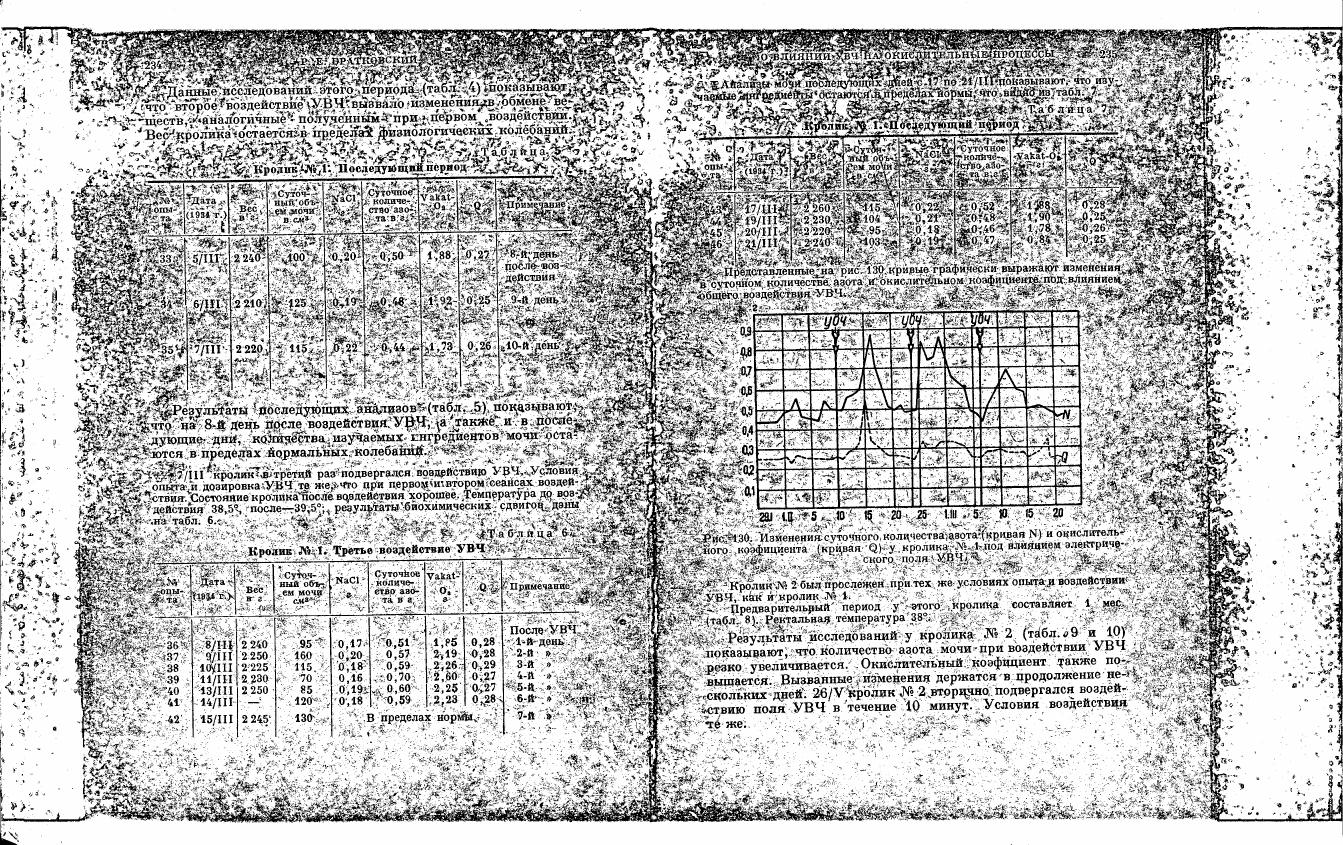 234 Р. Е. БРАТКОВСКИЙ
Данные исследований этого периода (табл. 4) показывают,
что второе воздействие УВЧ вызвало изменения в обмене ве-
ществ, аналогичные полученным при первом воздействии.
Вес кролика остается в пределах физиологических колебаний.
Таблица 5
Кролик № 1. Последующий период
№ опы-та Дата (1934 г.) Вес в г Суточ-ный объ-ем мочи в см³ NaCl Суточное количе-ство азо-та в г Vakat-O₂ Q Примечание
33 5/III 2 240 100 0,20 0,50 1,88 0,27 8-й день
после воз-
действия
34 6/III 2 210 125 0,19 0,48 1,92 0,25 9-й день
35 7/III 2 220 115 0,22 0,44 1,73 0,26 10-й день
Результаты последующих анализов (табл. 5) показывают,
что на 8-й день после воздействия УВЧ, а также и в после-
дующие дни, количества изучаемых ингредиентов мочи оста-
ются в пределах нормальных колебаний.
7/III кролик в третий раз подвергался воздействию УВЧ. Условия
опыта и дозировка УВЧ те же, что при первом и втором сеансах воздей-
ствия. Состояние кролика после воздействия хорошее. Температура до воз-
действия 38,5°, после—39,5°; результаты биохимических сдвигов даны
на табл. 6.
Таблица 6
Кролик № 1. Третье воздействие УВЧ
№ опы-та Дата (1934 г.) Вес в г Суточ-ный объ-ем мочи см³ NaCl г Суточное количе-ство азо-та в г Vakat-O₂ г Q Примечание
После УВЧ
36 8/III 2 240 95 0,17 0,51 1,85 0,28 1-й день
37 9/III 2 250 160 0,20 0,57 2,19 0,28 2-й »
38 10/III 2 225 115 0,18 0,59 2,26 0,29 3-й »
39 11/III 2 230 70 0,16 0,70 2,60 0,27 4-й »
40 13/III 2 250 85 0,19 0,60 2,25 0,27 5-й »
41 14/III — 120 0,18 0,59 2,23 0,28 6-й »
42 15/III 2 245 130 В пределах нормы 7-й »
О ВЛИЯНИИ УВЧ НА ОКИСЛИТЕЛЬНЫЕ ПРОЦЕССЫ
Анализы мочи последующих дней с 17 по 21/III показывают, что изу-
чаемые ингредиенты остаются в пределах нормы, что видно из табл. 7.
Таблица 7
Кролик № 1. Последующий период
№ опы- Дата (1934 г.) Вес Суточ-ный объ-ем мочи NaCl Суточное количе-ство азо-та в г Vakat-O₂ Q
17/III 2 260 115 0,22 0,52 1,88 0,28
44 19/III 2 230 104 0,21 0,48 1,90 0,25
45 20/III 2 220 95 0,18 0,46 1,78 0,26
46 21/III 2 240 103 0,19 0,47 0,84 0,25
Представленные на рис. 130 кривые графически выражают изменения
в суточном количестве азота и окислительном коэфициенте под влиянием
общего воздействия УВЧ.
УВЧ УВЧ УВЧ
0,9
0,8
0,7
0,6
0,5 N
0,4
0,3 Q
0,2
0,1
29.I 1.II 5 10 15 20 25 1.III 5 10 15 20
Рис. 130. Изменения суточного количества азота (кривая N) и окислитель-
ного коэфициента (кривая Q) у кролика № 1 под влиянием электриче-
ского поля УВЧ.
Кролик № 2 был прослежен при тех же условиях опыта и воздействии
УВЧ, как и кролик № 1.
Предварительный период у этого кролика составляет 1 мес.
(табл. 8). Ректальная температура 38°.
Результаты исследований у кролика № 2 (табл. 9 и 10)
показывают, что количество азота мочи при воздействии УВЧ
резко увеличивается. Окислительный коэфициент также по-
вышается. Вызванные изменения держатся в продолжение не-
скольких дней. 26/V кролик № 2 вторично подвергался воздей-
ствию поля УВЧ в течение 10 минут. Условия воздействия
те же.